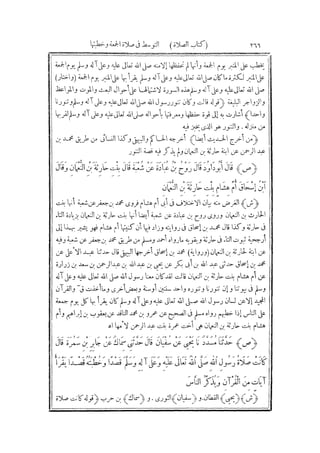 ٢٦٦ (كتاب الصلاة) التوسط فى صلاة الجمعة وخطبتها
يخطب على المنبر يوم الجمعة وأنها لم تحفظها إلا منه صلى الله تعالى عليه وعلى آله وسلم يوم الجمعة
على المنبر لكثرة ما كان صلى الله تعالى عليه وعلى آله وسلم يقرأ بها على المنبر يوم الجمعة (واختار)
صلى الله تعالى عليه وعلى آله وسلم هذه السورة لاشتمالها على أحوال البعث والموت والمواعظ
والزواجر البليغة (قوله قالت وكان تنور رسول الله صلى الله تعالى عليه وعلى آله وسلم وتنورنا
واحدا) أشارت به إلى قوة حفظها ومعرفتها بأحواله صلى الله تعالى عليه وعلى آله وسلم لقربها
من منزله. والتنور هو الذى يخبز فيه
(من أخرج الحديث أيضا) أخرجه الحاكم والبيهقى وكذا النسائى من طريق محمد بن
عبد الرحمن عن ابنة حارثة بن النعمان ولم يذكر فيه قصة التنور
(ص) قَالَ أَبُو دَاوُدَ قَالَ رَوْحُ بْنُ عُبَادَةَ عَنْ شُعْبَةَ قَالَ بِنْتُ حَارِثَةَ بْنِ النُّعْمَانِ وَقَالَ
ابْنُ إِسْحَاقَ أُمُّ هِشَامٍ بِنْتُ حَارِثَةَ بْنِ النُّعْمَانِ
(ش) الغرض منه بيان الاختلاف فى أبى أم هشام فروى محمد بن جعفر عن شعبة أنها بنت
الحارث بن النعمان وروى روح بن عبادة عن شعبة أيضا أنها بنت حارثة بن النعمان بزيادة التاء
فى حارثة وكذا قال محمد بن إسحاق فى روايته وزاد فيها أن كنيتها أم هشام فهو يشير بهذا إلى
أرجحية ثبوت التاء فى حارثة ويقويه ما رواه أحمد ومسلم من طريق محمد بن جعفر عن شعبة وفيه
عن ابنة لحارثة بن النعمان (ورواية) محمد بن إسحاق أخرجها البيهقى قال حدثنا عبد الأعلى عن
محمد بن إسحاق حدثنى عبد الله بن أبى بكر عن يحيى بن عبد الله بن عبد الرحمن بن سعد بن زرارة
عن أم هشام بنت حارثة بن النعمان قالت لقد كان معنا رسول الله صلى الله تعالى عليه وعلى آله
وسلم فى بيوتنا وإن تنورنا وتنوره واحد سنتين أو سنة وبعض أخرى وما أخذت ق والقرآن
المجيد إلا عن لسان رسول الله صلى الله تعالى عليه وعلى آله وسلم كان يقرأ بها كل يوم جمعة
على الناس إذا خطبهم رواه مسلم فى الصحيح عن عمرو بن محمد الناقد عن يعقوب بن إبراهيم وأم
هشام بنت حارثة بن النعمان هى أخت عمرة بنت عبد الرحمن لأمها اه
(ص) حَدَّثَنَا مُسَدَّدٌ نَا يَحْيَى عَنْ سُفْيَانَ قَالَ حَدَّثَنِي سِمَاكٌ عَنْ جَابِرِ بْنِ سَمُرَةَ قَالَ
كَانَتْ صَلَاةُ رَسُولِ اللهِ صَلَّى اللهُ تَعَالَى عَلَيْهِ وَعَلَى آلِهِ وَسَلَّمَ قَصْدًا وَخُطْبَتُهُ قَصْدًا يَقْرَأُ
آيَاتٍ مِنَ الْقُرْآنِ وَيُذَكِّرُ النَّاسَ
(ش) (يحيى) القطان. و(سفيان) الثورى. و (سماك) بن حرب (قوله كانت صلاة